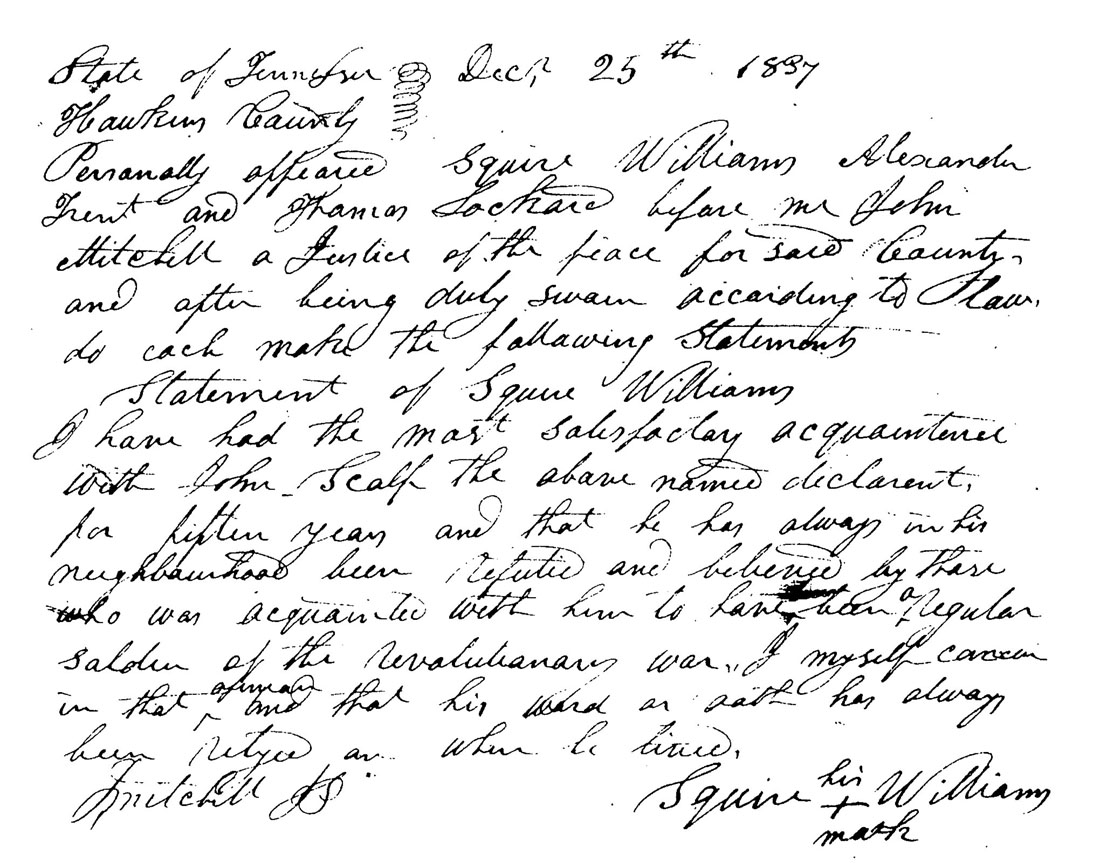 State of Tennessee Decr 25th 1837
Hawkins County
Personally appeared Squire Williams Alexander
Trent and Thomas Lockard before me John
Mitchell a Justice of the peace for said County,
and after being duly sworn according to law.
do each make the following Statements
Statement of Squire Williams
I have had the most satisfactory acquaintence
with John Scalf the above named declarent,
for fiften years and that he has always in his
neighbourhood been reputed and believed by those
who was acquainted with him to have been a regular
soldier of the revolutionary war. I myself concur
in that opinion and that his word or oath has always
been relyed on when he lived.
J Mitchell JP
Squire his + Williams
mark